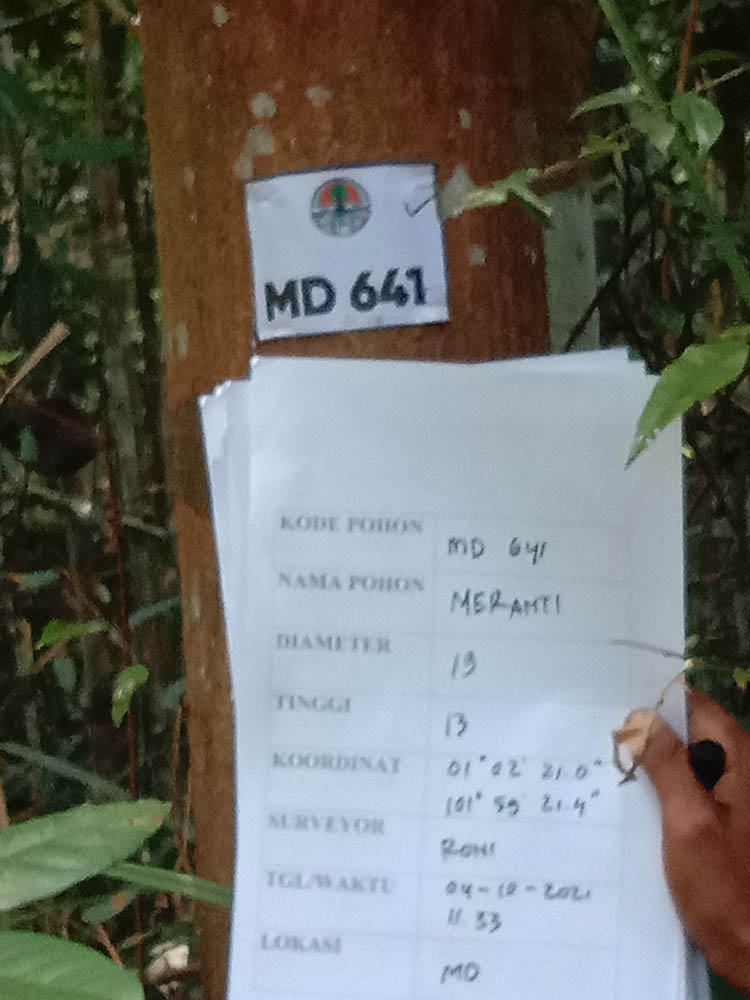 MD 641
KODE POHON MD 641
NAMA POHON MERANTI
DIAMETER 13
TINGGI 13
KOORDINAT 01° 02' 21.0"
101° 59' 21.4"
SURVEYOR RONI
TGL/WAKTU 04-10-2021
11.33
LOKASI MD